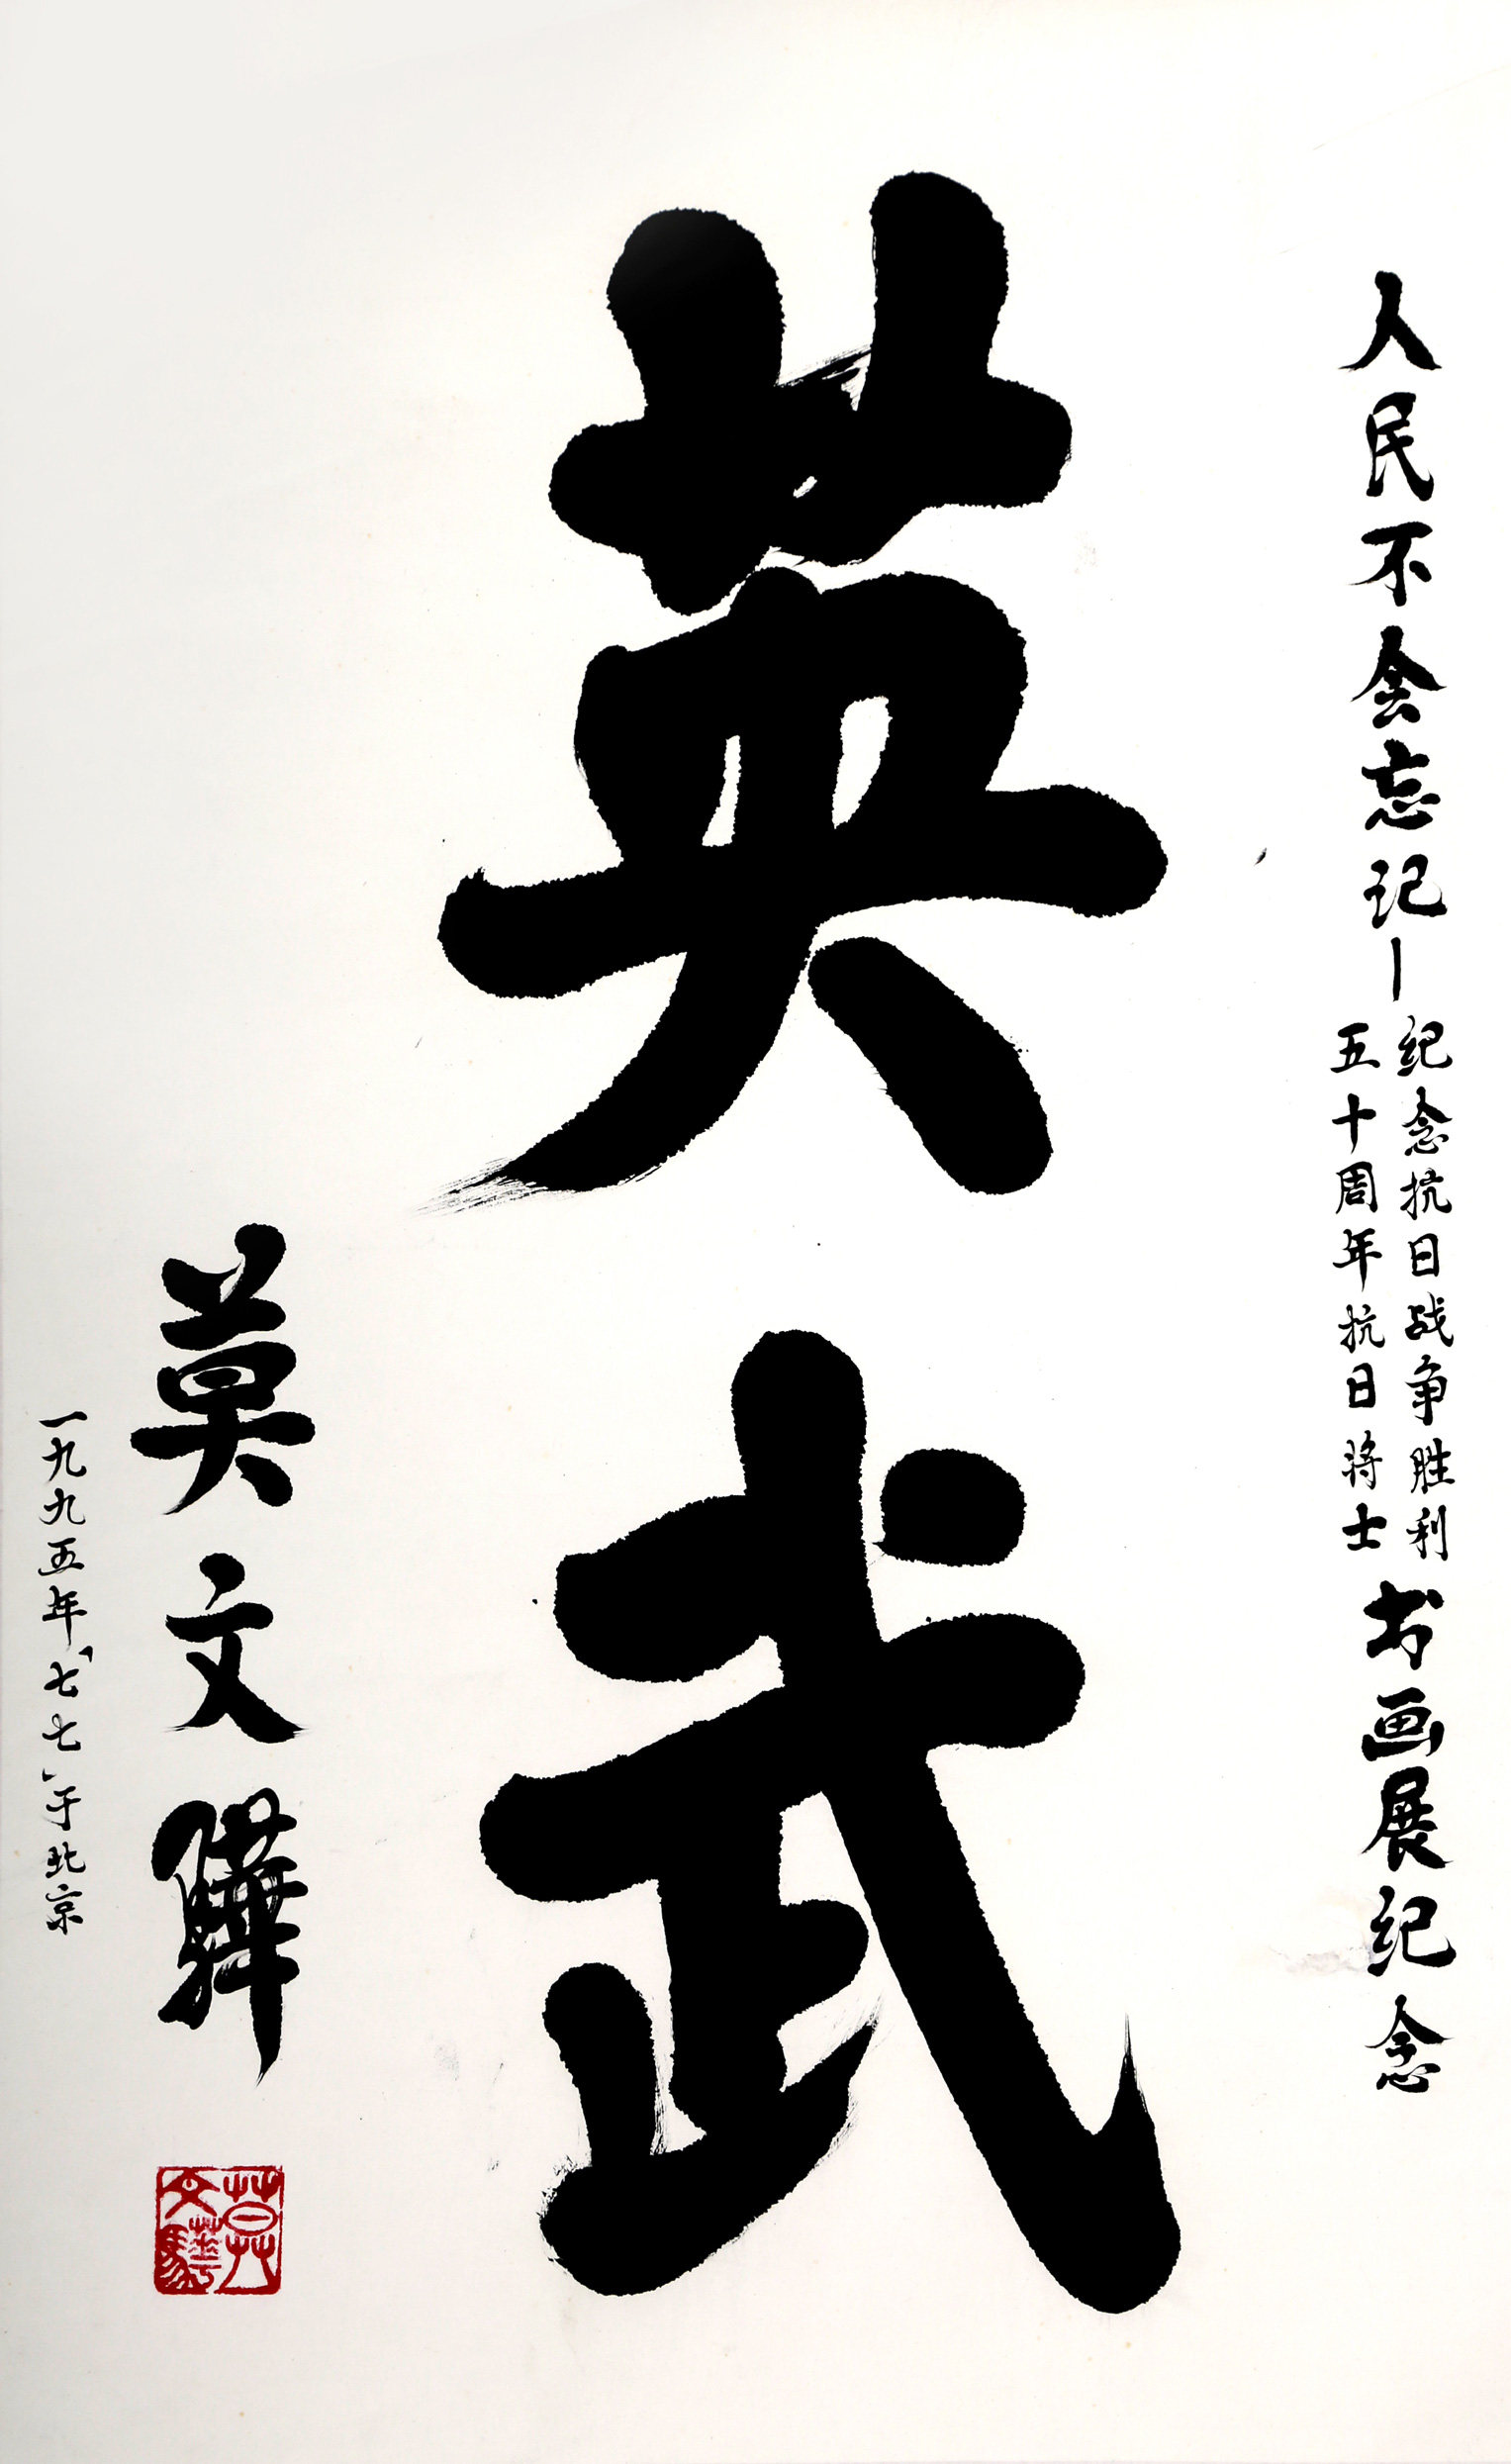 人民不会忘记—
纪念抗日战争胜利
五十周年抗日将士
书画展纪念
英武
莫文骅
一九九五年“七七”于北京
莫文骅